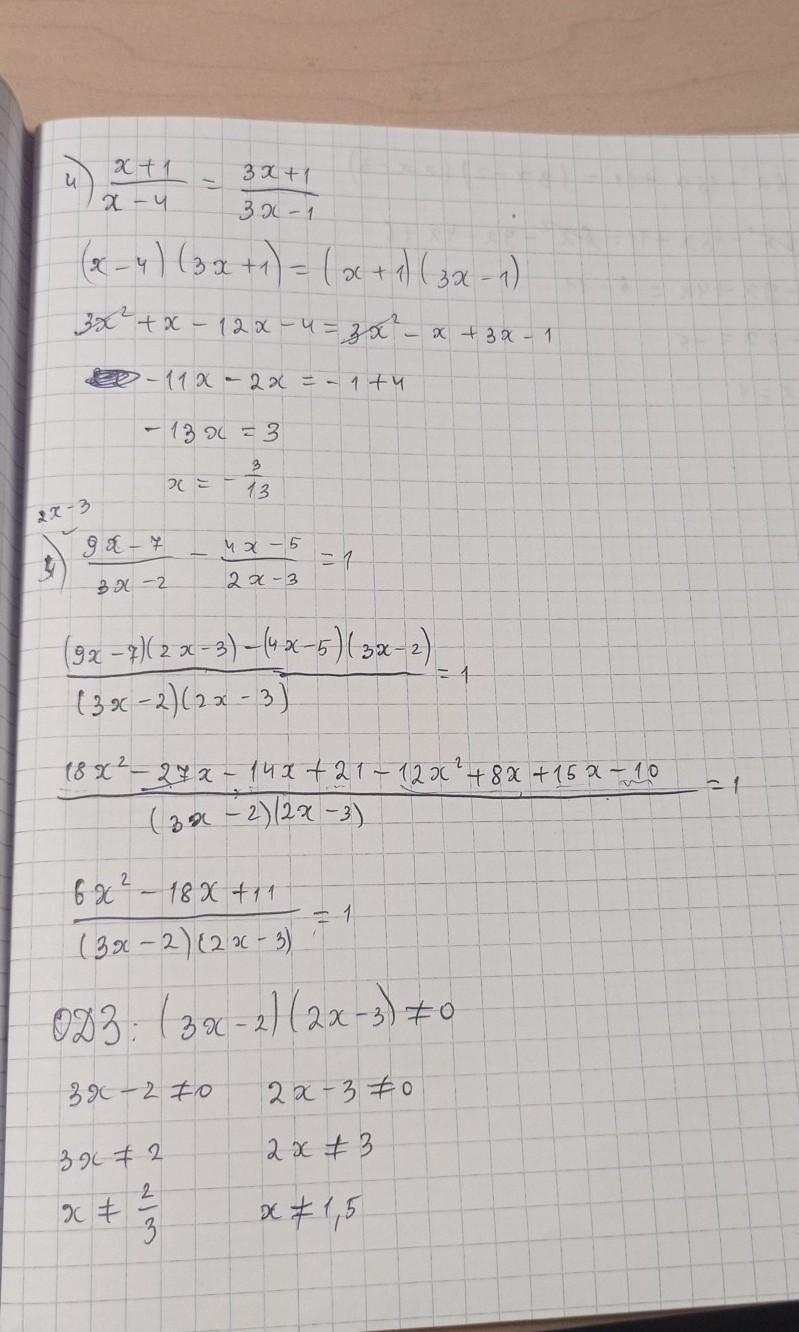 4) (x+1)/(x-4) = (3x+1)/(3x-1)
(x-4)(3x+1)=(x+1)(3x-1)
3x²+x-12x-4=3x²-x+3x-1
-11x-2x=-1+4
-13x=3
x=-3/13
2x-3
(9x-7)/(3x-2) - (4x-5)/(2x-3) = 1
((9x-7)(2x-3)-(4x-5)(3x-2))/((3x-2)(2x-3)) = 1
(18x²-27x-14x+21-12x²+8x+15x-10)/((3x-2)(2x-3)) = 1
(6x²-18x+11)/((3x-2)(2x-3)) = 1
ОДЗ: (3x-2)(2x-3)≠0
3x-2≠0 2x-3≠0
3x≠2 2x≠3
x≠2/3 x≠1,5